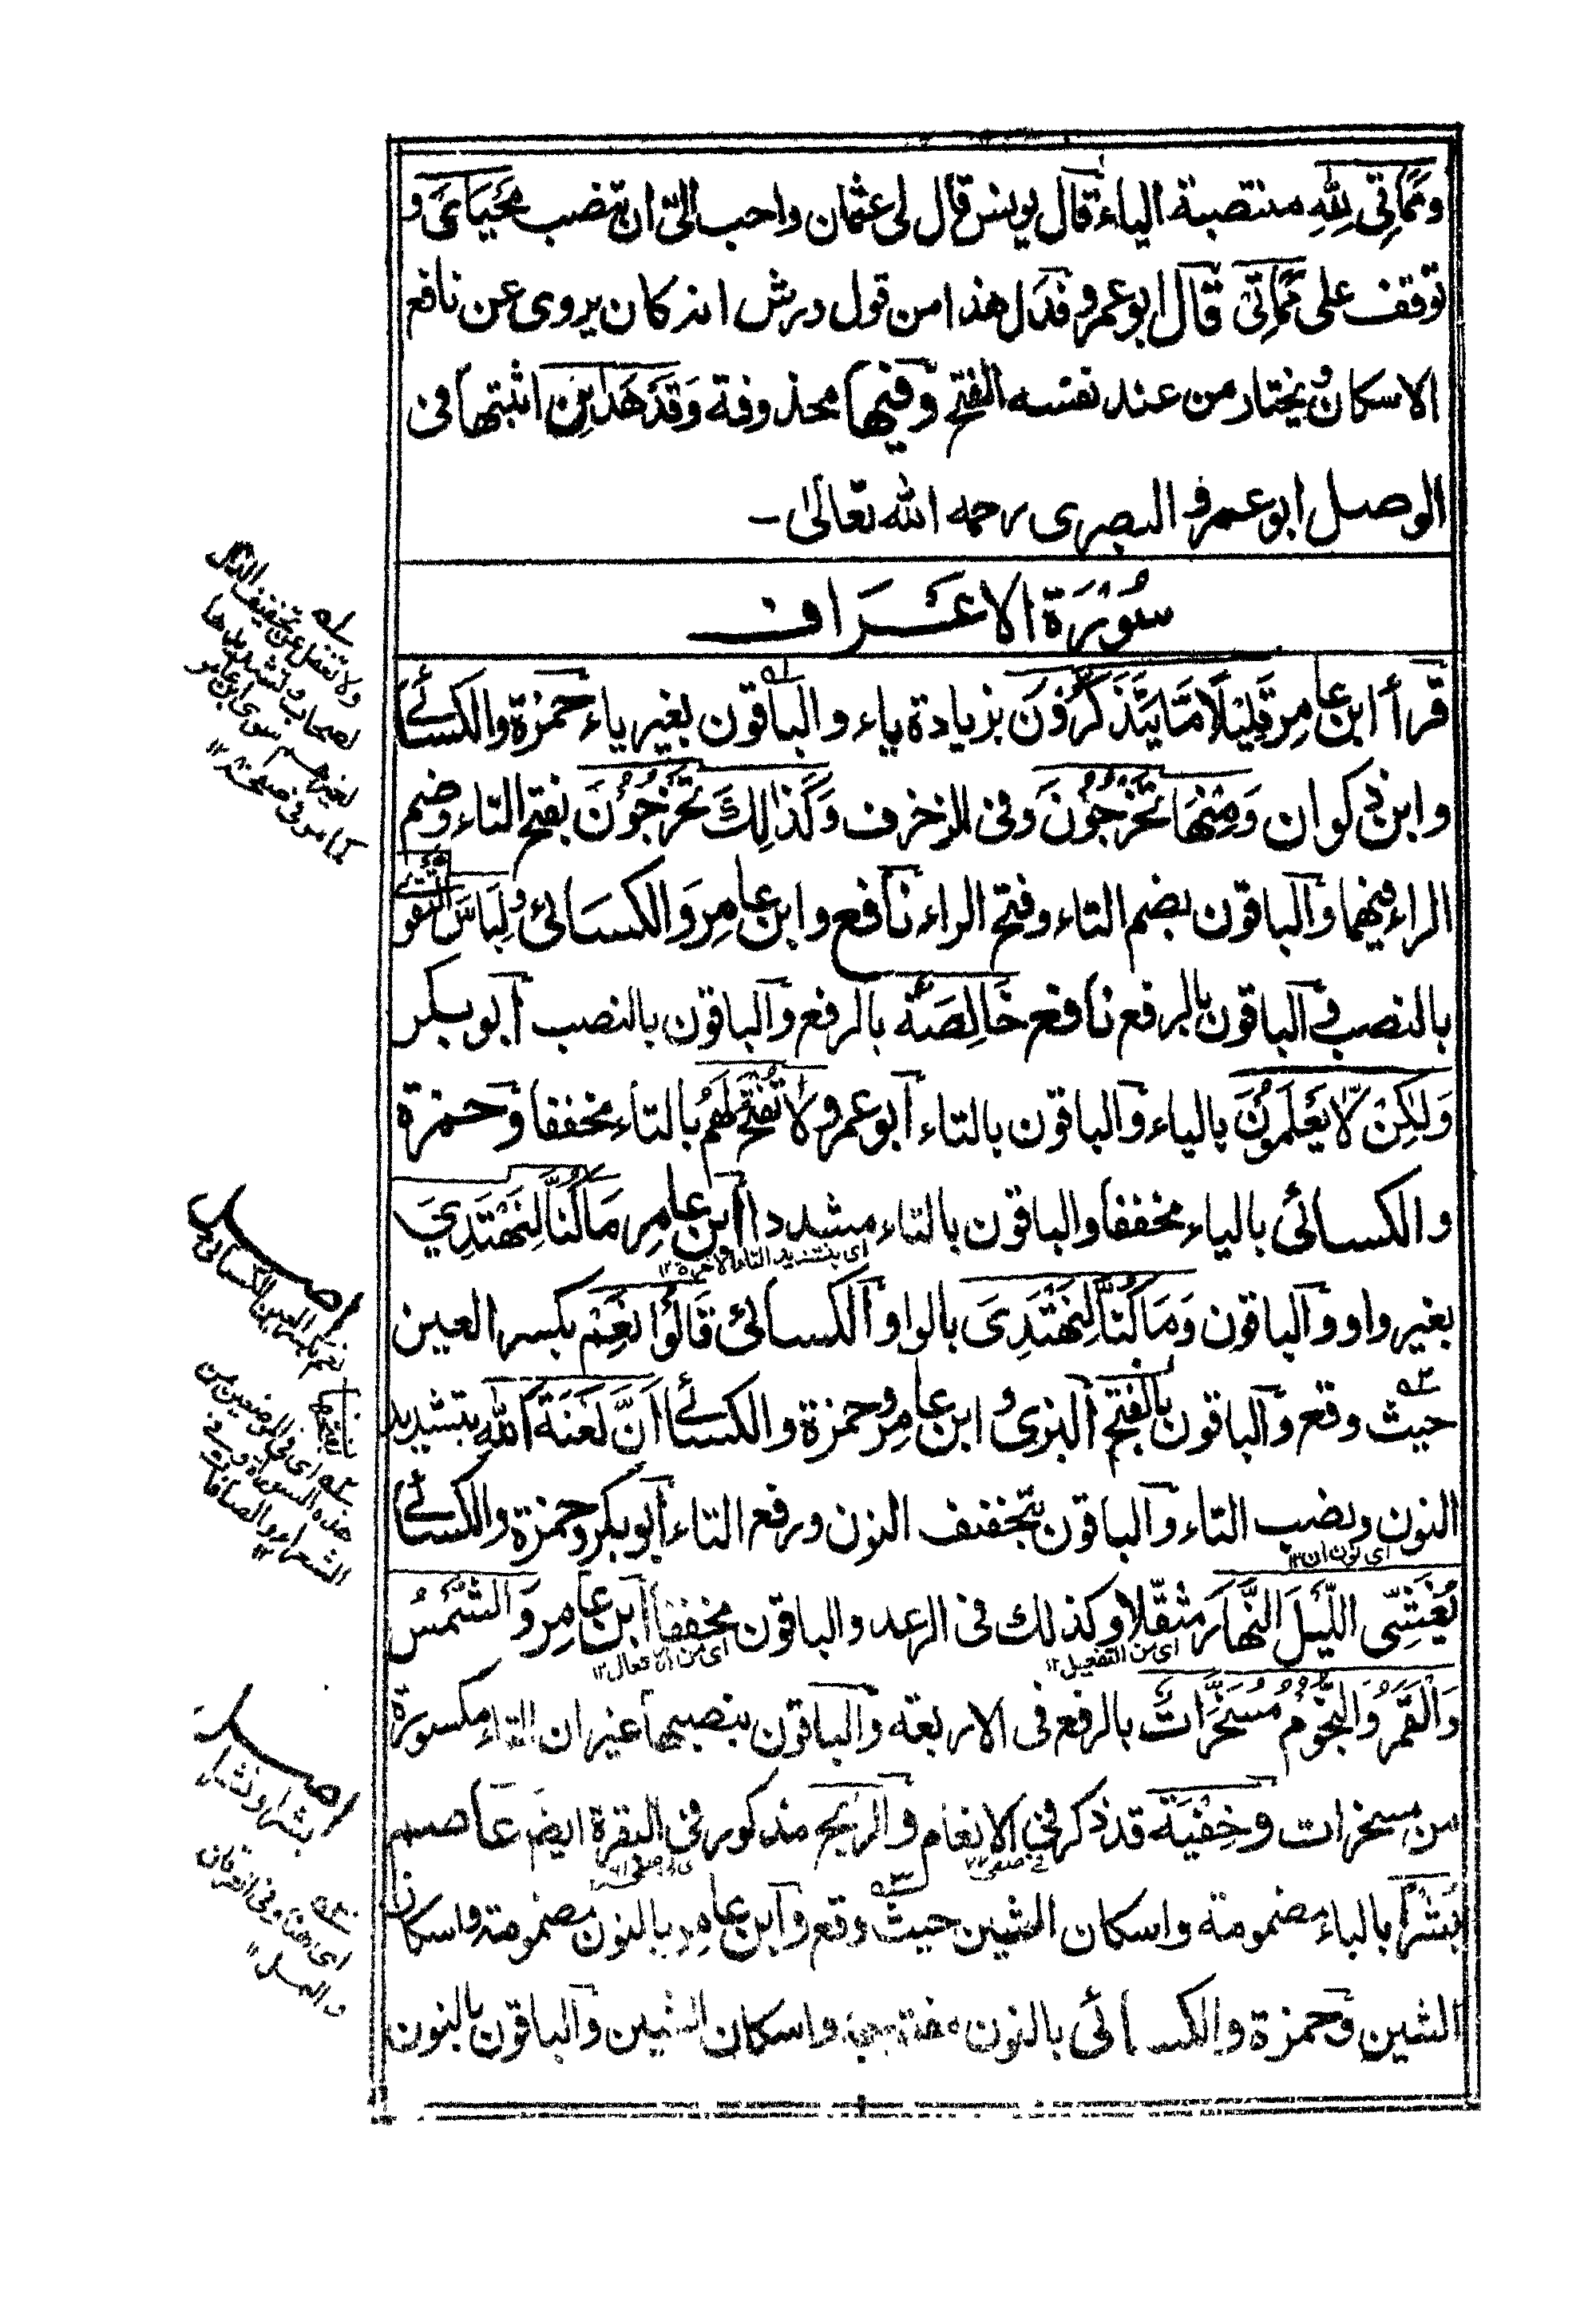 ومَمَاتِى لِلّٰهِ منتصبة الياء قال يونس قال لى عثمان واحب الىّ ان تنصب مَحْيَاىَ و
توقف على مَمَاتِى قال ابو عمرو فدل هذا من قول ورش انه كان يروى عن نافع
الاسكان و يختار من عند نفسه الفتح و فيها محذوفة وَقَدْ هَدٰىنِ اثبتها فى
الوصل ابو عمرو البصرى رحمه الله تعالىٰ -
سُوْرَة الاعْرَاف
قرأ ابن عامِر قَلِيْلًا مَّا يَتَذَكَّرُوْنَ بزيادة ياء و الباقون بغير ياء حمزة والكسائے
و ابن ذكوان وَمِنْهَا تَخْرُجُوْنَ و فى الزخرف وَكَذٰلِكَ تَخْرُجُوْنَ بفتح التاء وضم
الراء فيهما والباقون بضم التاء وفتح الراء نافع و ابن عامِر وَالكسَائى وَلِبَاسَ التَّقْوٰى
بالنصب و الباقون بالرفع نافع خَالِصَةٌ بالرفع والباقون بالنصب ابو بكر
وَلٰكِنْ لَّا يَعْلَمُوْنَ بالياء والباقون بالتاء ابو عمرو لَا تُفْتَحُ لَهُمْ بالتاء مخففا و حمزة
و الكسائى بالياء مخففا والباقون بالتاء مشددا ابن عامِر مَا كُنَّا لِنَهْتَدِيَ
اى بتشديد التاء الاخيرة ١٢
بغير واو والباقون وَمَا كُنَّا لِنَهْتَدِىَ بالواو الكسائى قَالُوْا نَعِمْ بكسر العين
حيث وقع والباقون بالفتح البزى و ابن عامِر وحمزة والكسائے اَنَّ لَعْنَةَ اللهِ بتشديد
النون ونصب التاء والباقون بتخفيف النون ورفع التاء ابو بكر وحمزة والكسائے
اى نون ان ١٢
يُغَشِّى اللَّيْلَ النَّهَارَ مثقلا وكذلك فى الرعد والباقون مخففا ابن عامِر وَالشَّمْسُ
اى من التفعيل ١٢ اى من الافعال ١٢
وَالْقَمَرُ وَالنُّجُوْمُ مُسَخَّرَاتٌ بالرفع فى الاربعة والباقون بنصبها غير ان التاء مكسورة
من مسخرات و خِفْيَةً قد ذكر فى الانعام والريح مذكور فى البقرة ايضا عاصم
بُشْرًا بالباء مضمومة واسكان الشين حيث وقع وابن عامر بالنون مضمومة واسكان
الشين و حمزة والكسائى بالنون مفتوحة واسكان الشين والباقون بالنون
ولا تغفل عن تخفيف الذال
لصحاب وتشديدها
لغيرهم سوى ابن عامر
كما مر فى
نعم بكسر العين الكسائى
اى فى الموضعين من
هذه السورة وفى
الشعراء والصافات
١٢
بشرا و نشرا
اى هنا وفى الفرقان
و النمل ١٢